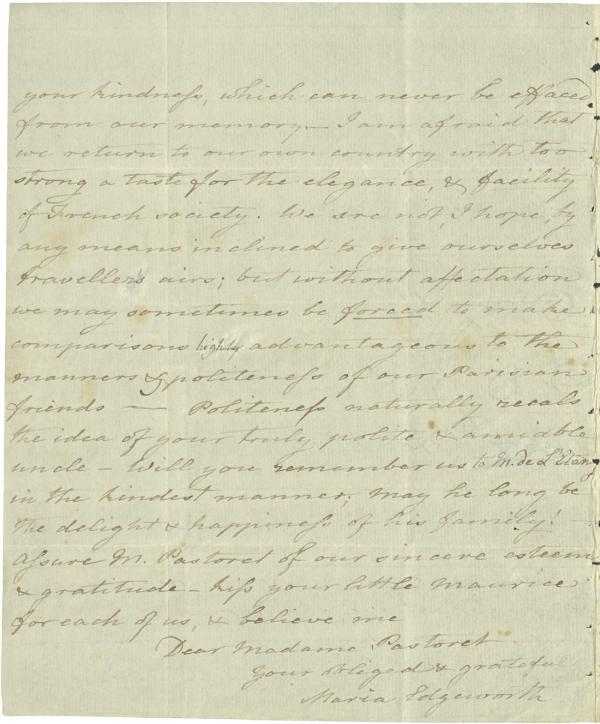 your kindness, which can never be effaced
from our memory — I am afraid that
we return to our own country with too
strong a taste for the elegance, & facility
of French society. We are not, I hope, by
any means inclined to give ourselves
travellers airs; but without affectation
we may sometimes be forced to make
comparisons highly advantageous to the
manners & politeness of our Parisian
friends — Politeness naturally recals
the idea of your truly polite & amiable
uncle — Will you remember us to M. de L'Etang
in the kindest manner; may he long be
the delight & happiness of his family! —
Assure M. Pastoret of our sincere esteem
& gratitude — kiss your little Maurice
for each of us, & believe me
Dear Madame Pastoret
Your obliged & grateful
Maria Edgeworth